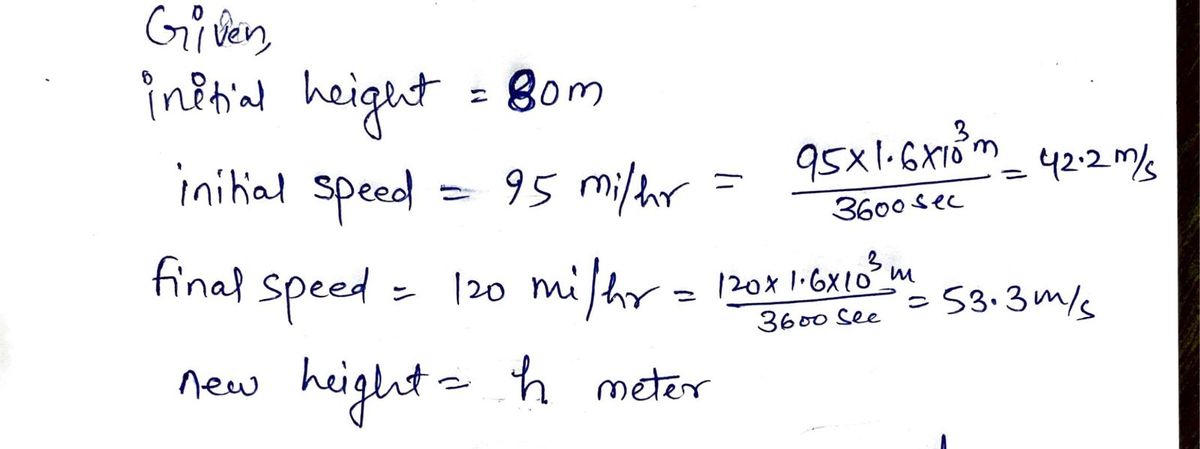 Given,
initial height = 80m
initial speed = 95 mi/hr = 95x1.6x10³m / 3600 sec = 42.2 m/s
final speed = 120 mi/hr = 120x1.6x10³m / 3600 sec = 53.3 m/s
new height = h meter